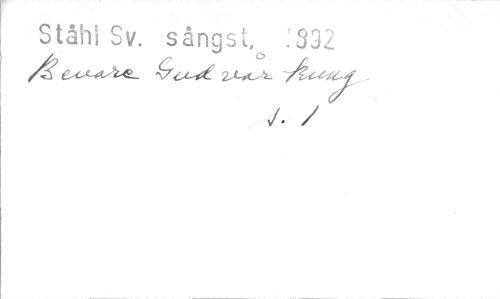 Ståhl Sv. sångst, 1892
Bevare Gud vår kung
s. 1